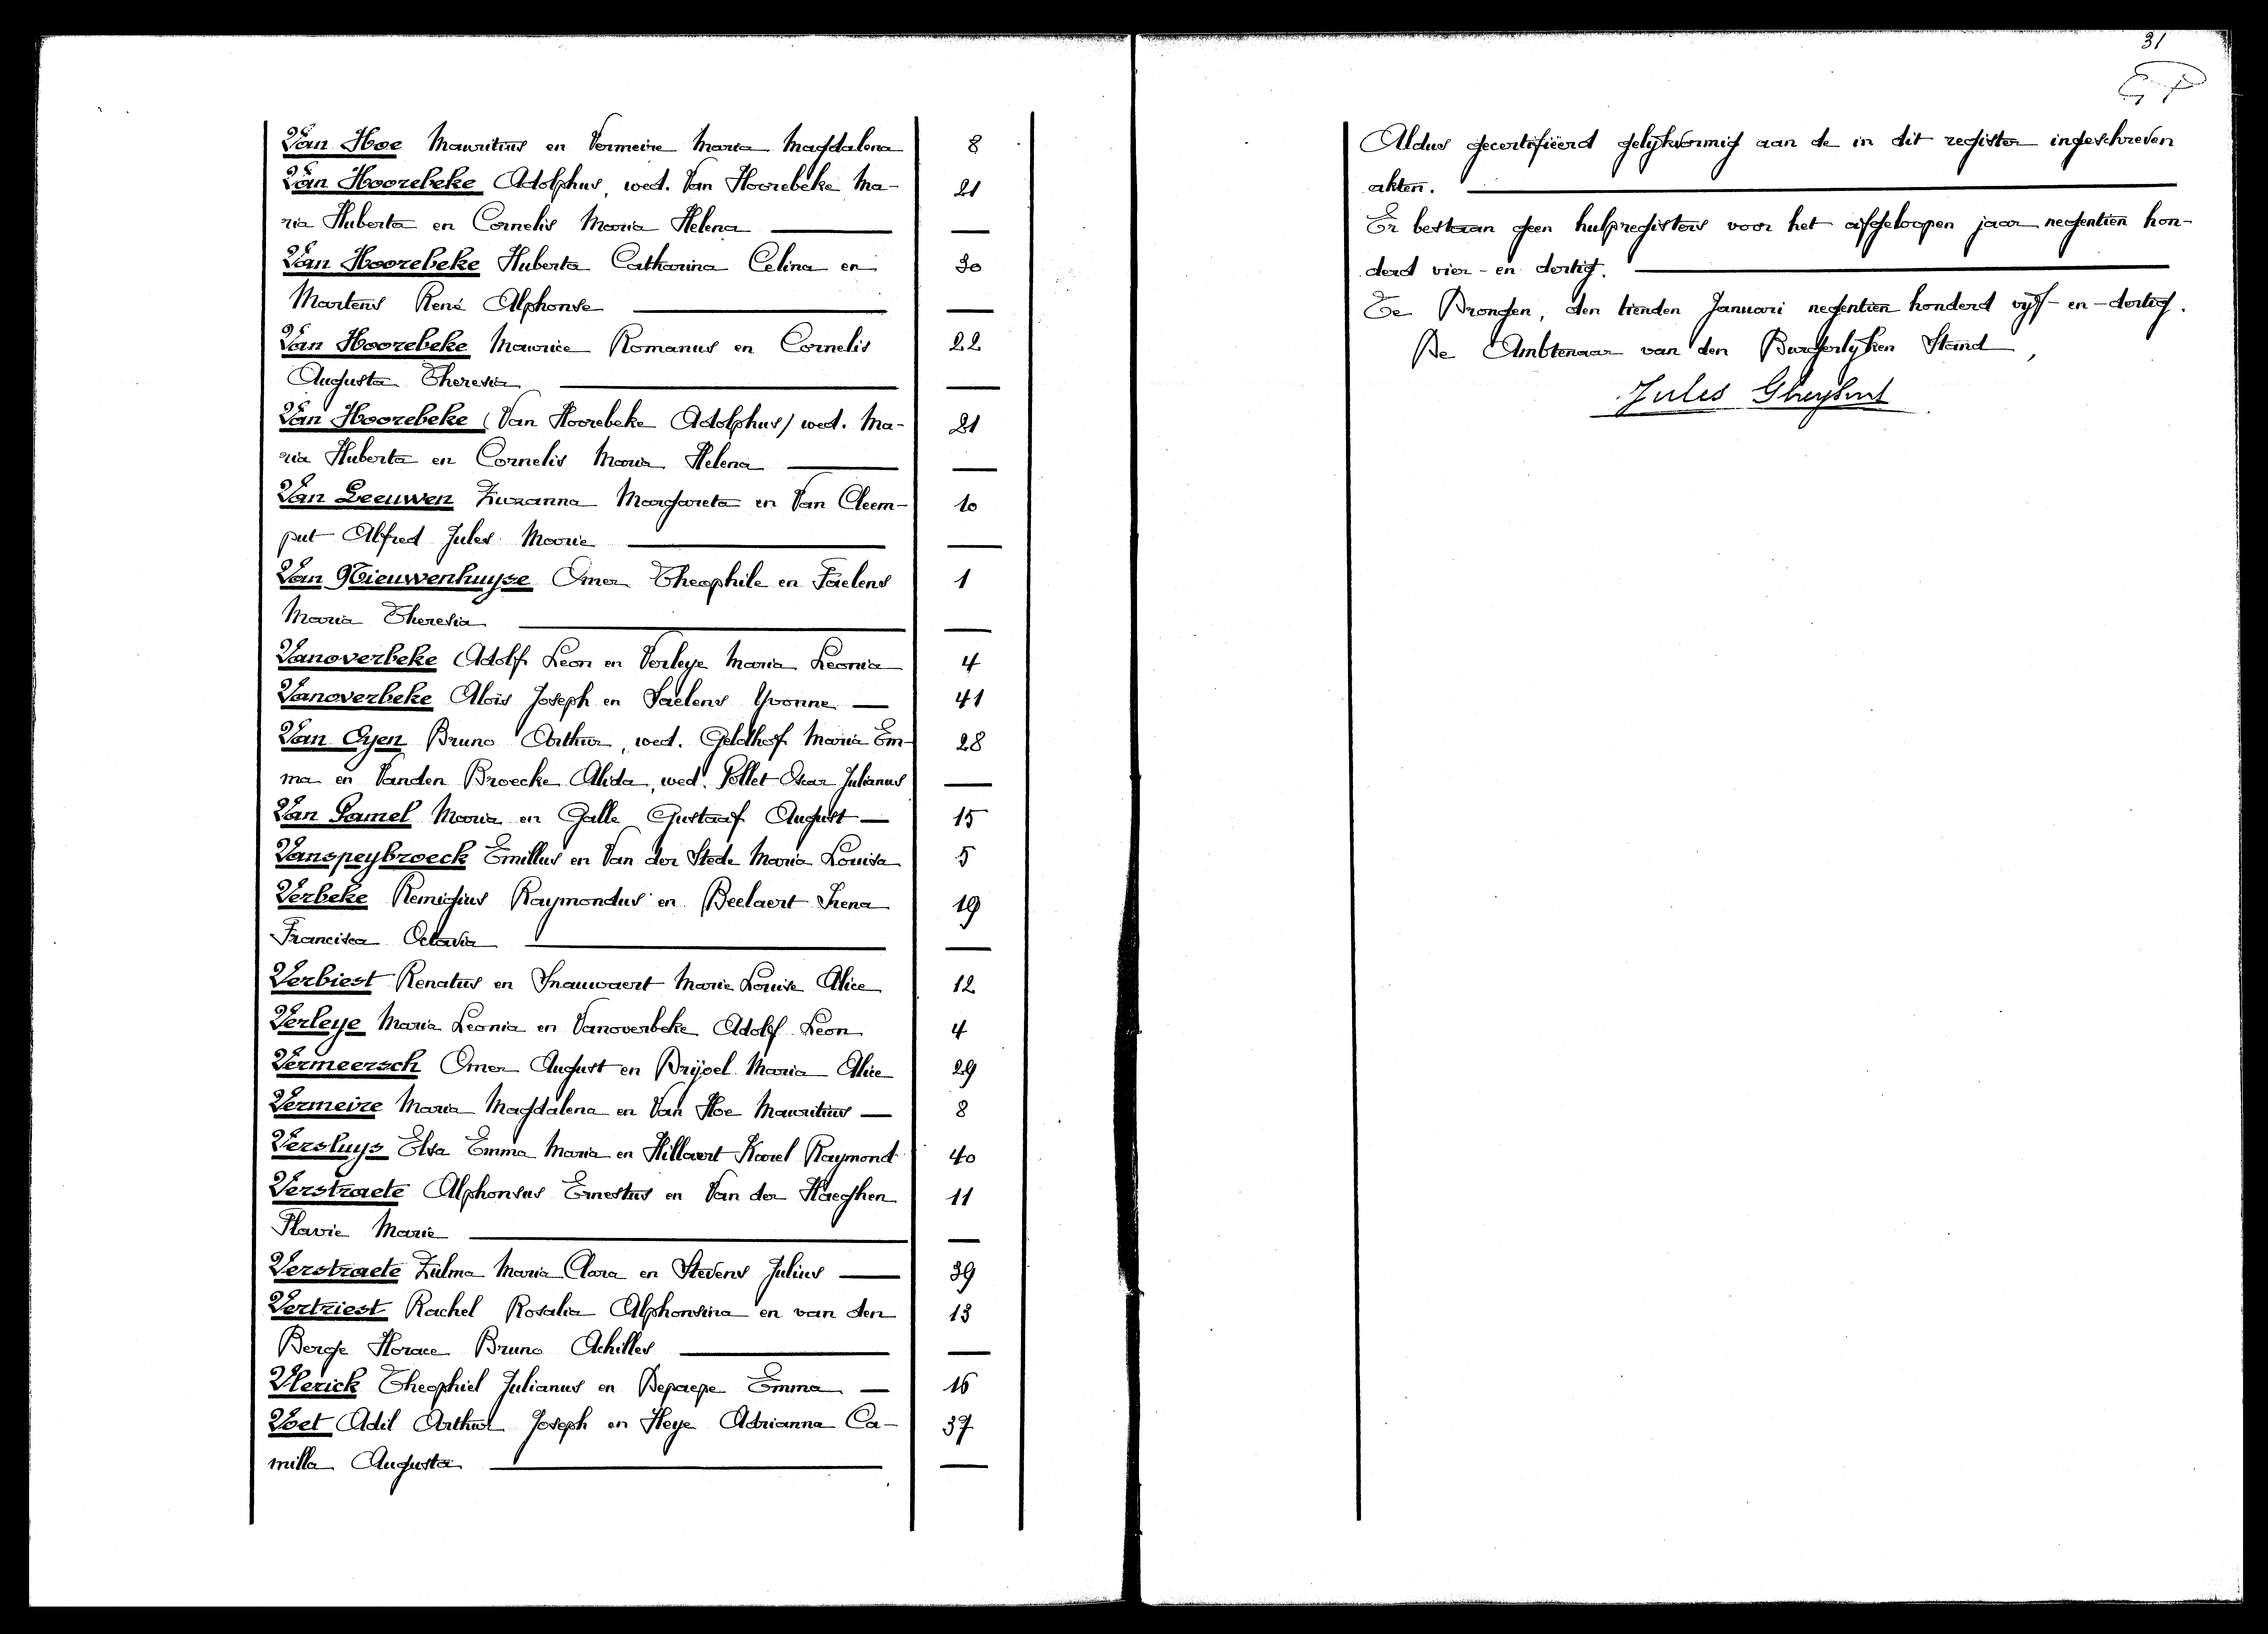 Van Hoe Mauritius en Vermeire Maria Magdalena 8
Van Hoorebeke Adolphus, wed. Van Hoorebeke Ma- 21
ria Huberta en Cornelis Maria Helena —
Van Hoorebeke Huberta Catharina Celina en 30
Martens René Alphonse —
Van Hoorebeke Maurice Romanus en Cornelis 22
Augusta Theresia —
Van Hoorebeke (Van Hoorebeke Adolphus) wed. Ma- 21
ria Huberta en Cornelis Maria Helena —
Van Leeuwen Zuzanna Margareta en Van Cleem- 10
put Alfred Jules Marie —
Van Nieuwenhuyse Omer Theophile en Taelens 1
Maria Theresia —
Vanoverbeke Adolf Leon en Verleye Maria Leonia 4
Vanoverbeke Alois Joseph en Saelens Yvonne — 41
Van Oyen Bruno Arthur, wed. Geldhof Maria Em- 28
ma en Vanden Broecke Alida, wed. Pollet Oscar Julianus —
Van Samel Maria en Galle Gustaaf August — 15
Vanspeybroeck Emillus en Van der Stede Maria Louisa 5
Verbeke Remigius Raymondus en Beelaert Irena 19
Francisca Octavia —
Verbiest Renatus en Snauwaert Marie Louise Alice 12
Verleye Maria Leonia en Vanoverbeke Adolf Leon 4
Vermeersch Omer August en Bryoel Maria Alice 29
Vermeire Maria Magdalena en Van Hoe Mauritius — 8
Versluys Elsa Emma Maria en Hillaert Karel Raymond 40
Verstraete Alphonsus Ernestus en Van der Haeghen 11
Flavie Marie —
Verstraete Zulma Maria Clara en Stevens Julius — 39
Vertriest Rachel Rosalia Alphonsina en van den 13
Berge Horace Bruno Achilles —
Vlerick Theophiel Julianus en Depaepe Emma — 16
Voet Adil Arthur Joseph en Heye Adrianna Ca- 37
milla Augusta —
31
Aldus gecertifiëerd gelijkvormig aan de in dit register ingeschreven
akten.
Er bestaan geen hulpregisters voor het afgeloopen jaar negentien hon-
derd vier-en dertig.
Te Drongen, den tienden Januari negentien honderd vijf-en-dertig.
De Ambtenaar van den Burgerlyken Stand,
Jules Gheysens